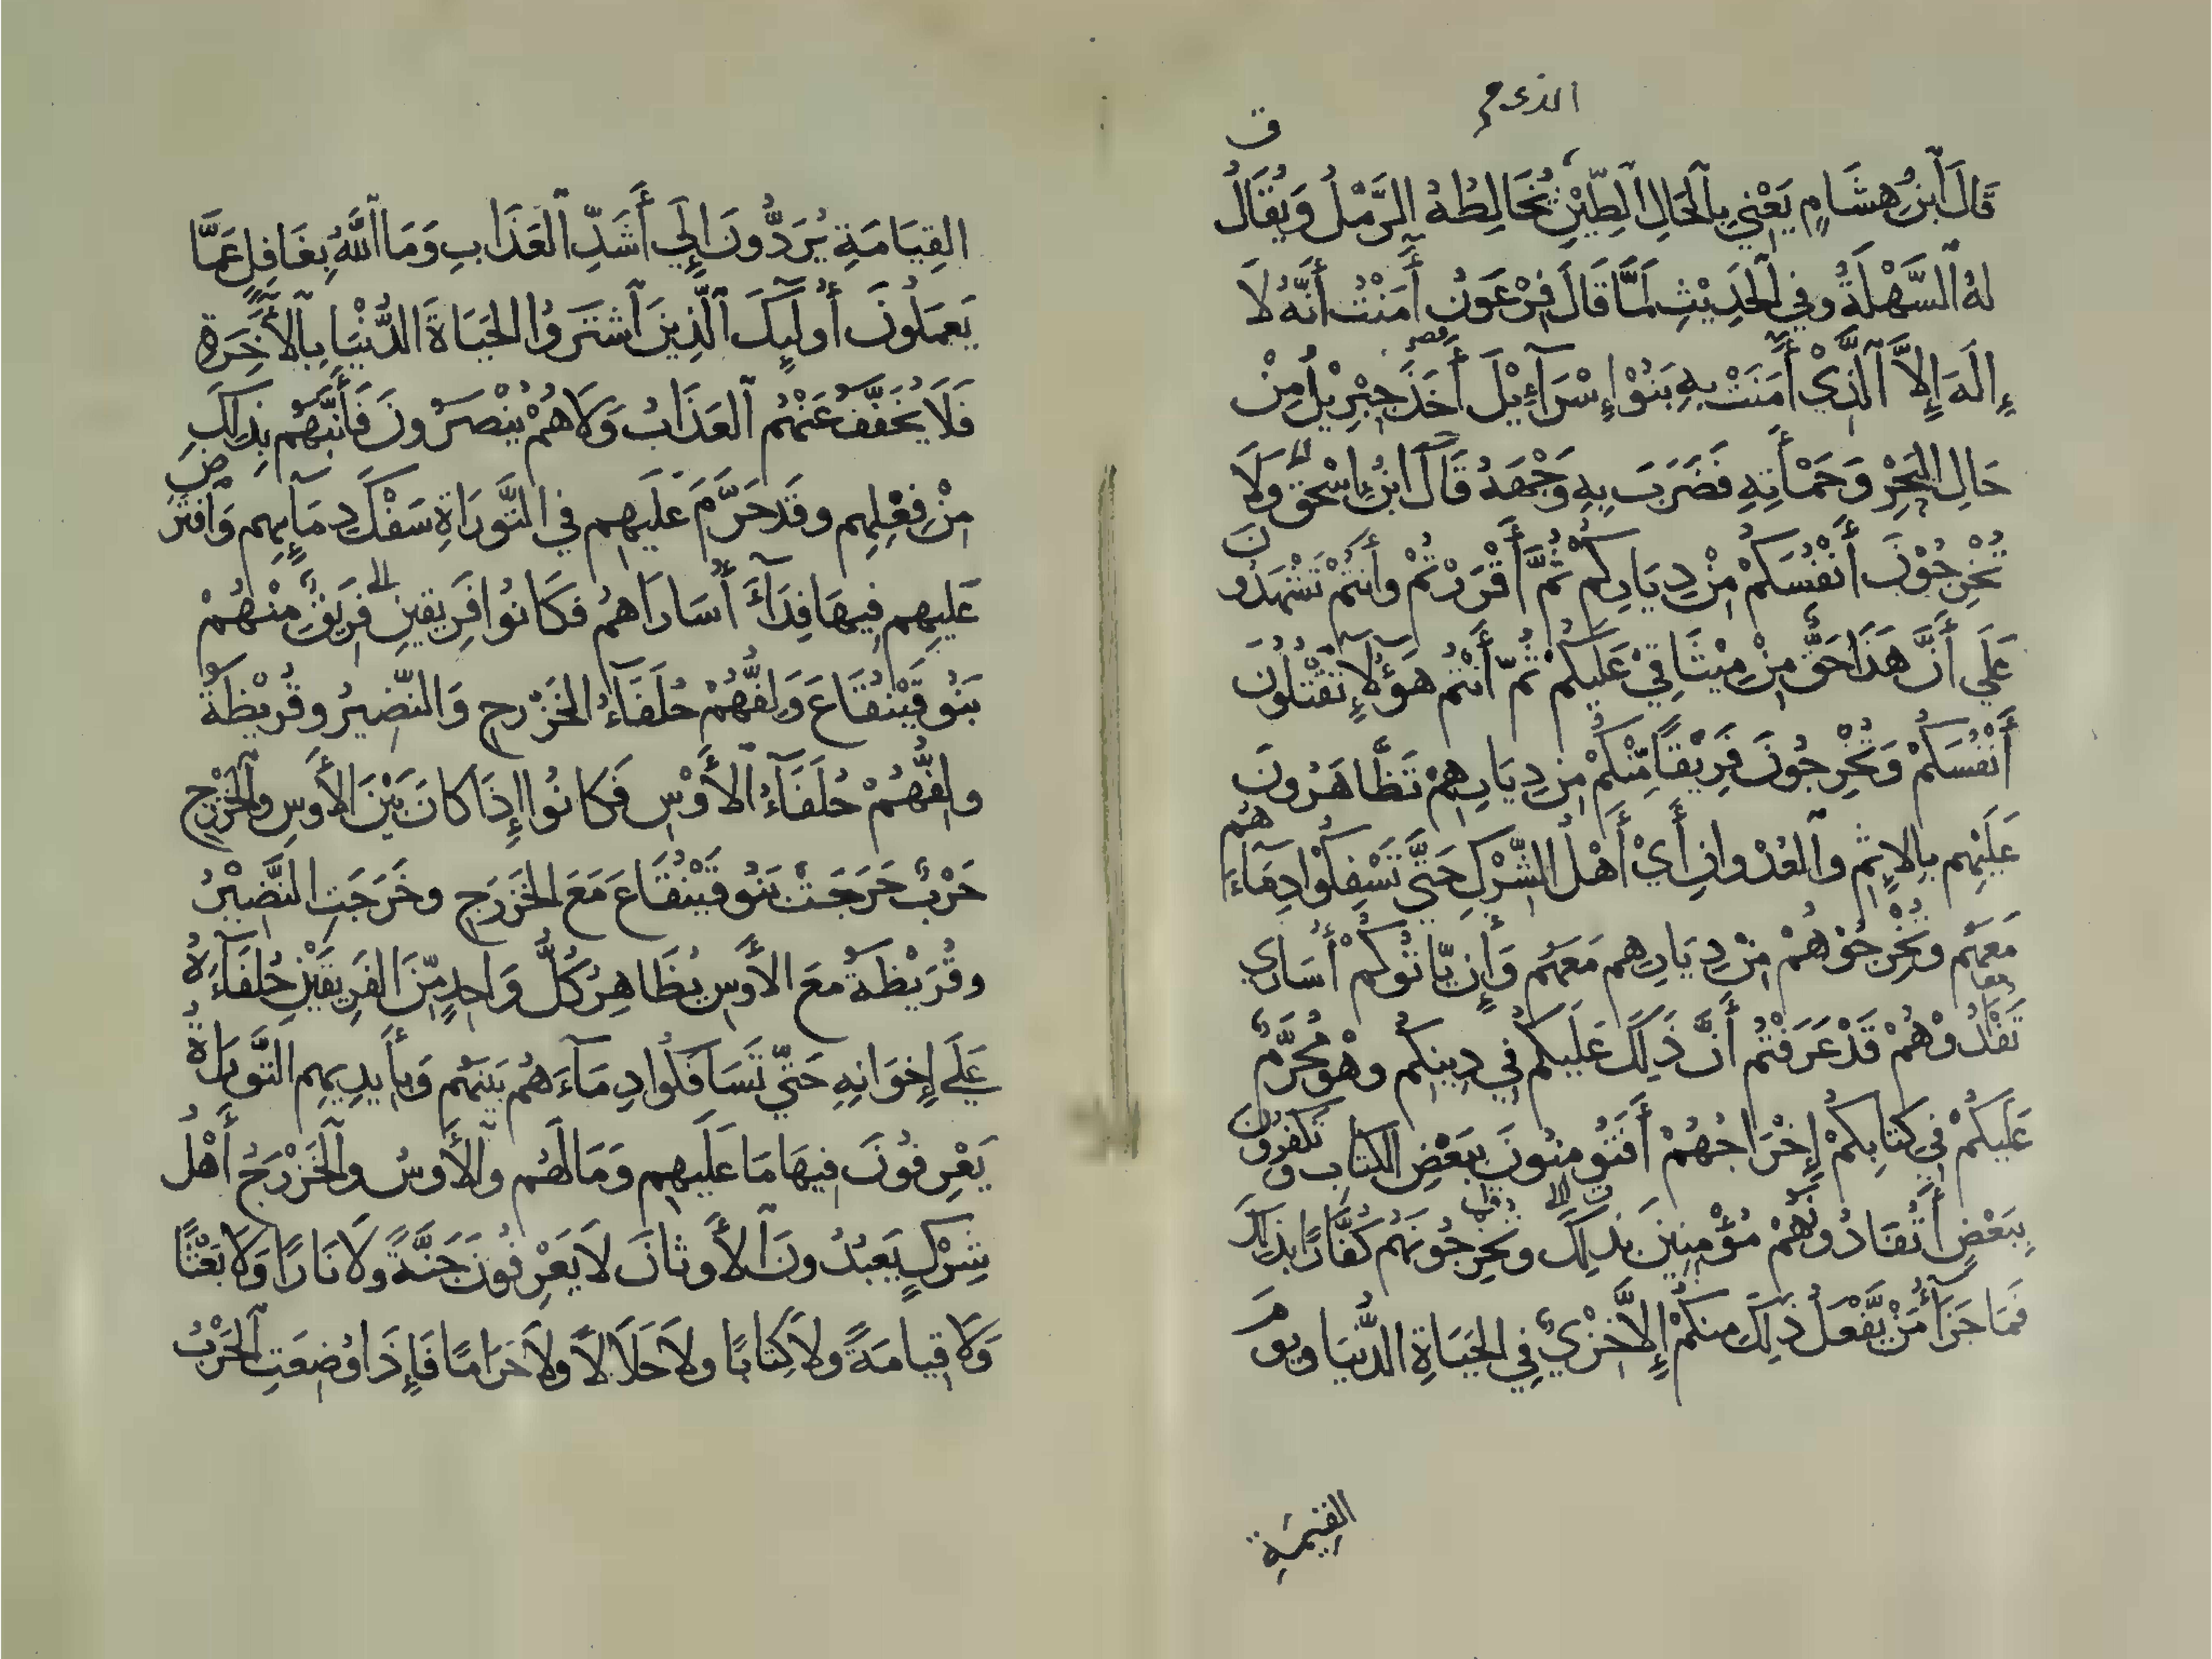 الذي م
ق
قَالَ ٱبنُ هِشَامٍ يَعْنِي بِٱلْحَالِ ٱلطِّيْنِ يُخَالِطُهُ الرَّمْلُ وَيُقَالُ
لهُ ٱلسَّهْلَةُ وفي ٱلحَدِيْثِ لَمَّا قَالَ فِرْعَوْنُ أٓمَنْتُ أَنَّهُ لَا
إِلَهَ إِلاَّ ٱلَّذِيْ أٓمَنَتْ بِهِ بَنُوْا إِسْرَآءِيْلَ أَخَذَ جِبْرِيْلُ مِنْ
حَالِ البَحْرِ وَحَمْأَتِهِ فَضَرَبَ بِهِ وَجْهَهُ قَالَ ابْنُ إِسْحَقَ وَلَا
تُخْرِجُوْنَ أَنْفُسَكُمْ مِنْ دِيَارِكُمْ ثُمَّ أَقْرَرْتُمْ وأَنتُمْ تَشْهَدُونَ
عَلَي أَنَّ هَذَا حَقٌّ مِنْ مِيْثَاقِيْ عَلَيْكُمْ ثُمّ أَنْتُمْ هَؤُلَآءِ تَقْتُلُونَ
أَنْفُسَكُمْ وَتُخْرِجُونَ فَرِيْقًا مِّنْكُمْ مِن دِيَارِهِمْ تَظَّاهَرُونَ
عَلَيْهِم بِالاِثمِ وٱلعُدْوانِ أَيْ أَهْلَ الشّرْكِ حَتَّي تَسْفِكُوْا دِمَآءَهُم
مَعَهُم وتُخْرِجُوْهُمْ مِنْ دِيَارِهِم مَعَهُم وَإِن يَّاتُوكُمْ أُسَارَي
تَفْدُوْهُمْ قَدْ عَرَفْتُم أَنَّ ذَلِكَ عَلَيكُم فِي دِينِكُم وهْوَ مُحَرَّمٌ
عَلَيكُمْ فِي كتَابِكمْ إِخْرَاجُهُمْ أَفَتُؤمِنُونَ بِبَعْضِ الكتَاب وَتكفُرُونَ
بِبَعْضٍ أَتُفَادُوْنَهُمْ مُؤْمِنِينَ بِذَلِكَ وتُخْرِجُونَهُم كُفَّارًا بذَلكَ
فَمَا جَزَآءُ مَنْ يَّفْعَلُ ذَلِكَ مِنكُمْ إِلاَّ خِزْيٌ فِي الحَيَاةِ الدُّنيَا وَيَومَ
القِيمَةِ
القِيَامَةِ يُرَدُّونَ إِلَي أَشَدِّ ٱلعَذَابِ وَمَا ٱللَّهُ بِغَافِلٍ عَمَّا
يَعمَلُونَ أُولَٓيِكَ ٱلَّذِينَ ٱشتَرَوُا الحَيَاةَ الدُّنْيَا بِالأَخِرَةِ
فَلَا يُخَفَّفُ عَنْهُم ٱلعَذَابُ وَلَا هُمْ يُنْصَرُونَ فَأَنَّبَهُم بِذلِكَ
مِنْ فِعْلِهِم وقَد حَرَّمَ عَلَيهِم فِي التَّورَاةِ سَفْكَ دِمَآيِهِم وَافتَرَضَ
عَلَيهِم فِيهَا فِدَآءَ أُسَارَاهُم فكَانُوا فَرِيقَينِ فَرِيقٌ مِنْهُمْ
بَنُو قَيْنُقَاعَ وَلِفُّهُمْ حُلَفَآءُ الخَزْرجِ وَالنَّضِيرُ وقُرَيْظَةُ
ولِفُّهُمْ حُلَفَآءُ ٱلأَوْسِ فَكانُوا إِذَا كانَ بَيْنَ الأَوسِ وٱلخَزْرَجِ
حَرْبٌ خَرَجَتْ بَنُو قَيْنُقَاعَ مَعَ الخَزرَجِ وخَرَجَتِ النَّضِيْرُ
وقُرَيْظَةُ معَ الأَوسِ يُظَاهِرُ كُلُّ وَاحِدٍ مِّنَ الفَرِيقَيْنِ حُلَفَآءَهُ
عَلَي إِخوَانِهِ حَتّي تَسَافَكُوا دِمَآءَهُم بَينَهُم وَبِأَيدِيهِم التَّورَاةُ
يَعْرِفُونَ فِيهَا مَا عَلَيهِم وَمَا لَهُم وٱلأَوسُ وٱلخَزْرَجُ أَهْلُ
شِرْكٍ يَعبُدُونَ ٱلأَوثَانَ لَا يَعرِفُونَ جَنَّةً ولَا نَارًا وَلَا بَعْثًا
وَلَا قِيامَةً ولَا كِتَابًا ولَا حَلَالًا ولَا حَرَامًا فَإِذَا وُضِعَتِ ٱلحَرْبُ